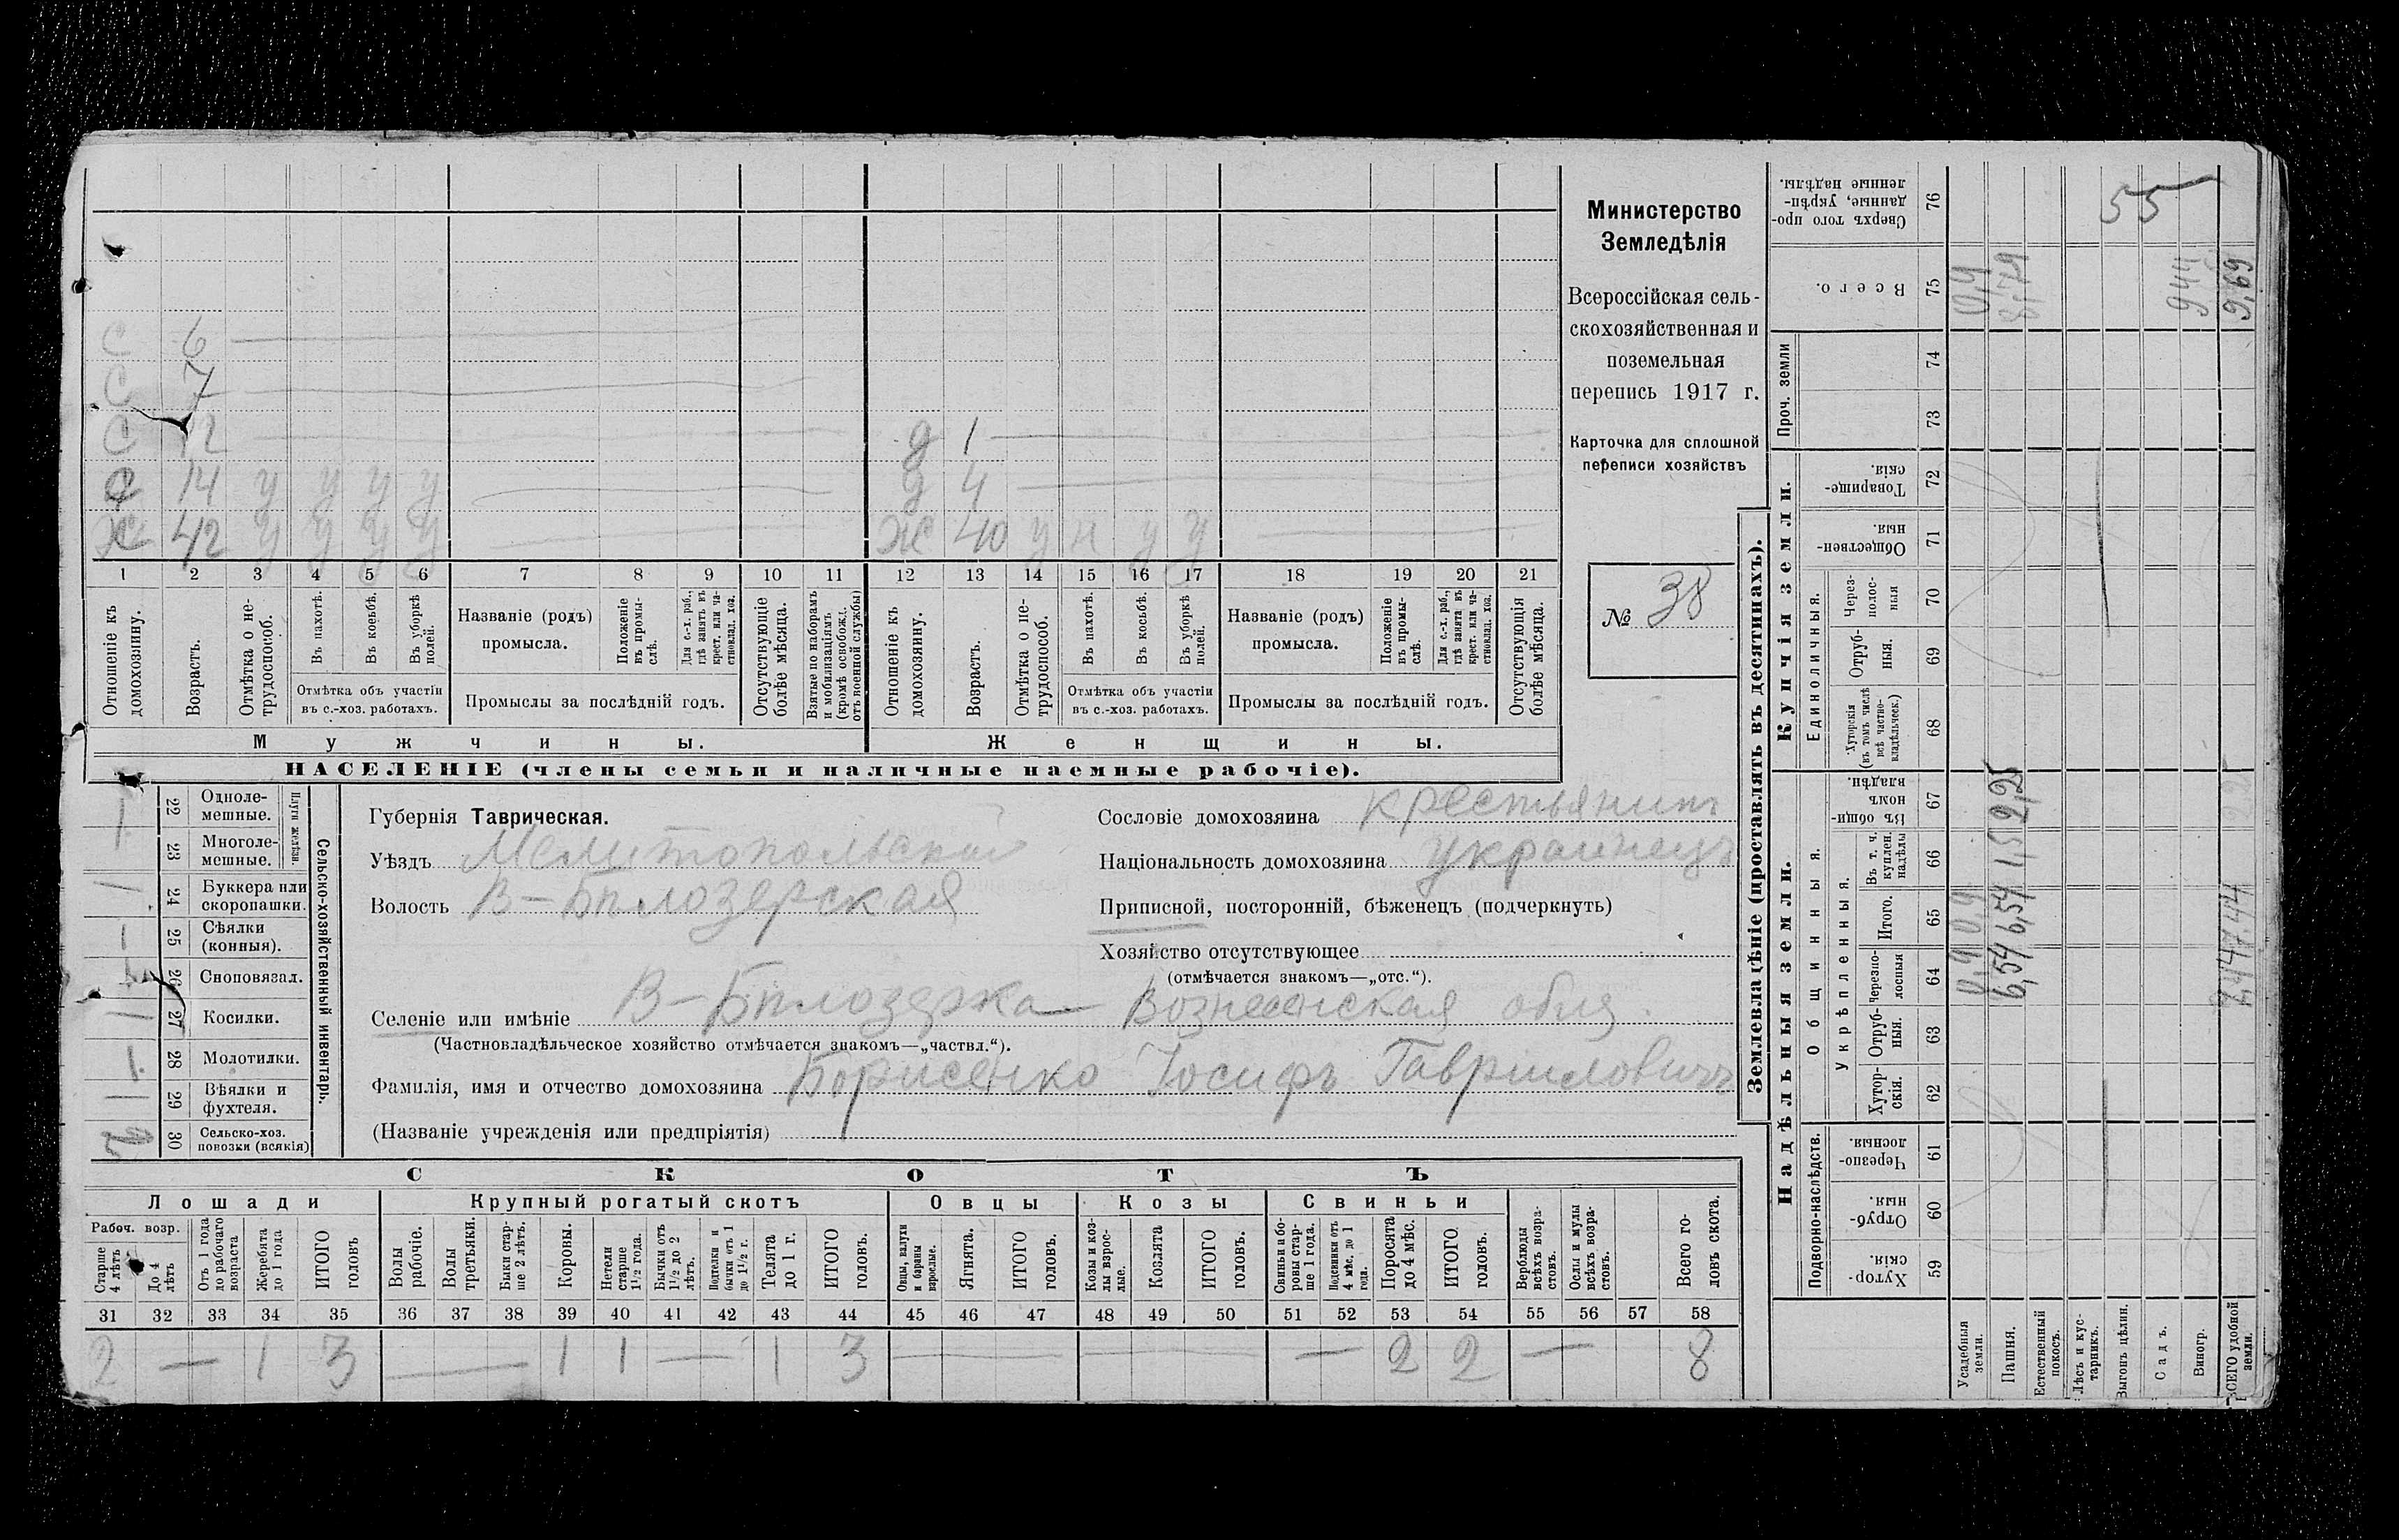 С 6
С 7
С 12
С 14 у у у у
Х 42 у у у у
д 1
д 4
Ж 40 у н у у
1 2 3 4 5 6 7 8 9 10 11 12 13 14 15 16 17 18 19 20 21
Отношеніе къ домохозяину.
Возрастъ.
Отмѣтка о не-трудоспособ.
Въ пахотѣ.
Въ косьбѣ.
Въ уборкѣ полей.
Отмѣтка объ участіи
въ с.-хоз. работахъ.
Названіе (родъ)
промысла.
Положеніе въ промы-слѣ.
Для с.-х. раб., гдѣ занятъ въ крест. или ча-стновлад. хоз.
Промыслы за послѣдній годъ.
Отсутствующіе болѣе мѣсяца.
Взятые по наборамъ и мобилизаціямъ (кромѣ освобожд. отъ военной службы)
Отношеніе къ домохозяину.
Возрастъ.
Отмѣтка о не-трудоспособ.
Въ пахотѣ.
Въ косьбѣ.
Въ уборкѣ полей.
Отмѣтка объ участіи
въ с.-хоз. работахъ.
Названіе (родъ)
промысла.
Положеніе въ промы-слѣ.
Для с.-х. раб., гдѣ занята въ крест. или ча-стновлад. хоз.
Промыслы за послѣдній годъ.
Отсутствующія болѣе мѣсяца.
Мужчины. Женщины.
НАСЕЛЕНІЕ (члены семьи и наличные наемные рабочіе).
Министерство
Земледѣлія
Всероссійская сель-
скохозяйственная и
поземельная
перепись 1917 г.
Карточка для сплошной
переписи хозяйствъ
№ 38
Сельско-хозяйственный инвентарь.
Плуги желѣзн.
22 Одноле-мешные.
23 Многоле-мешные.
24 Буккера или скоропашки.
25 Сѣялки (конныя).
26 Сноповязал.
27 Косилки.
28 Молотилки.
29 Вѣялки и фухтеля.
30 Сельско-хоз. повозки (всякія)
Губернія Таврическая.
Уѣздъ Мелитопольскій
Волость В-Бѣлозерская
Сословіе домохозяина крестьянинъ
Національность домохозяина украинецъ
Приписной, посторонній, бѣженецъ (подчеркнуть)
Хозяйство отсутствующее
(отмѣчается знакомъ—„отс.“).
Селеніе или имѣніе В-Бѣлозерка Вознесенская
(Частновладѣльческое хозяйство отмѣчается знакомъ—„частвл.“).
Фамилія, имя и отчество домохозяина Борисенко Іосифъ Гавриловичъ
(Названіе учрежденія или предпріятія)
СКОТЪ
Лошади Крупный рогатый скотъ Овцы Козы Свиньи
Рабоч. возр.
Старше 4 лѣтъ
До 4 лѣтъ
Отъ 1 года до рабочаго возраста
Жеребята до 1 года
ИТОГО головъ
Волы рабочіе.
Волы третьяки.
Быки стар-ше 2 лѣтъ.
Коровы.
Нетели старше 1½ года.
Бычки отъ 1½ до 2 лѣтъ.
Подтелки и бычки отъ 1 до 1½ г.
Телята до 1 г.
ИТОГО головъ.
Овцы, валухи и бараны взрослые.
Ягнята.
ИТОГО головъ.
Козы и коз-лы взрос-лые.
Козлята
ИТОГО головъ.
Свиньи и бо-ровы стар-ше 1 года.
Подсвинки отъ 4 мѣс. до 1 года.
Поросята до 4 мѣс.
ИТОГО головъ.
Верблюды всѣхъ возра-стовъ.
Ослы и мулы всѣхъ возра-стовъ.
Всего го-ловъ скота.
31 32 33 34 35 36 37 38 39 40 41 42 43 44 45 46 47 48 49 50 51 52 53 54 55 56 57 58
2 — 1 3 — 1 1 — 1 3 — — — 2 2 — 8
Землевладѣніе (проставлять въ десятинахъ).
Надѣльныя земли.
Купчія земли.
Проч. земли
Подворно-наслѣдств.
Общинныя.
Укрѣпленныя.
Единоличныя.
59 Хутор-скія.
60 Отруб-ныя.
61 Черезпо-лосныя.
62 Хутор-скія.
63 Отруб-ныя.
64 Черезпо-лосныя
65 Итого.
66 Въ т. ч. куплен. надѣлы
67 Въ общин-номъ владѣн.
68 Хуторскія (въ томъ числѣ всѣ частно-владѣльческ.)
69 Отруб-ныя.
70 Через-полос-ныя
71 Обществен-ныя.
72 Товарище-скія.
73
74
75 Всего.
76 Сверхъ того про-данные, укрѣп-ленные надѣлы.
Усадебныя земли. 0,9 0,9 0,9
Пашня. 6,54 6,54 1,5 2,25 8,79
Естественный покосъ.
Лѣсъ и кус-тарникъ.
Выгонъ цѣлин. 55
Садъ.
Виногр. 944
ВСЕГО удобной земли. 7,44 7,44 2,25 9,69